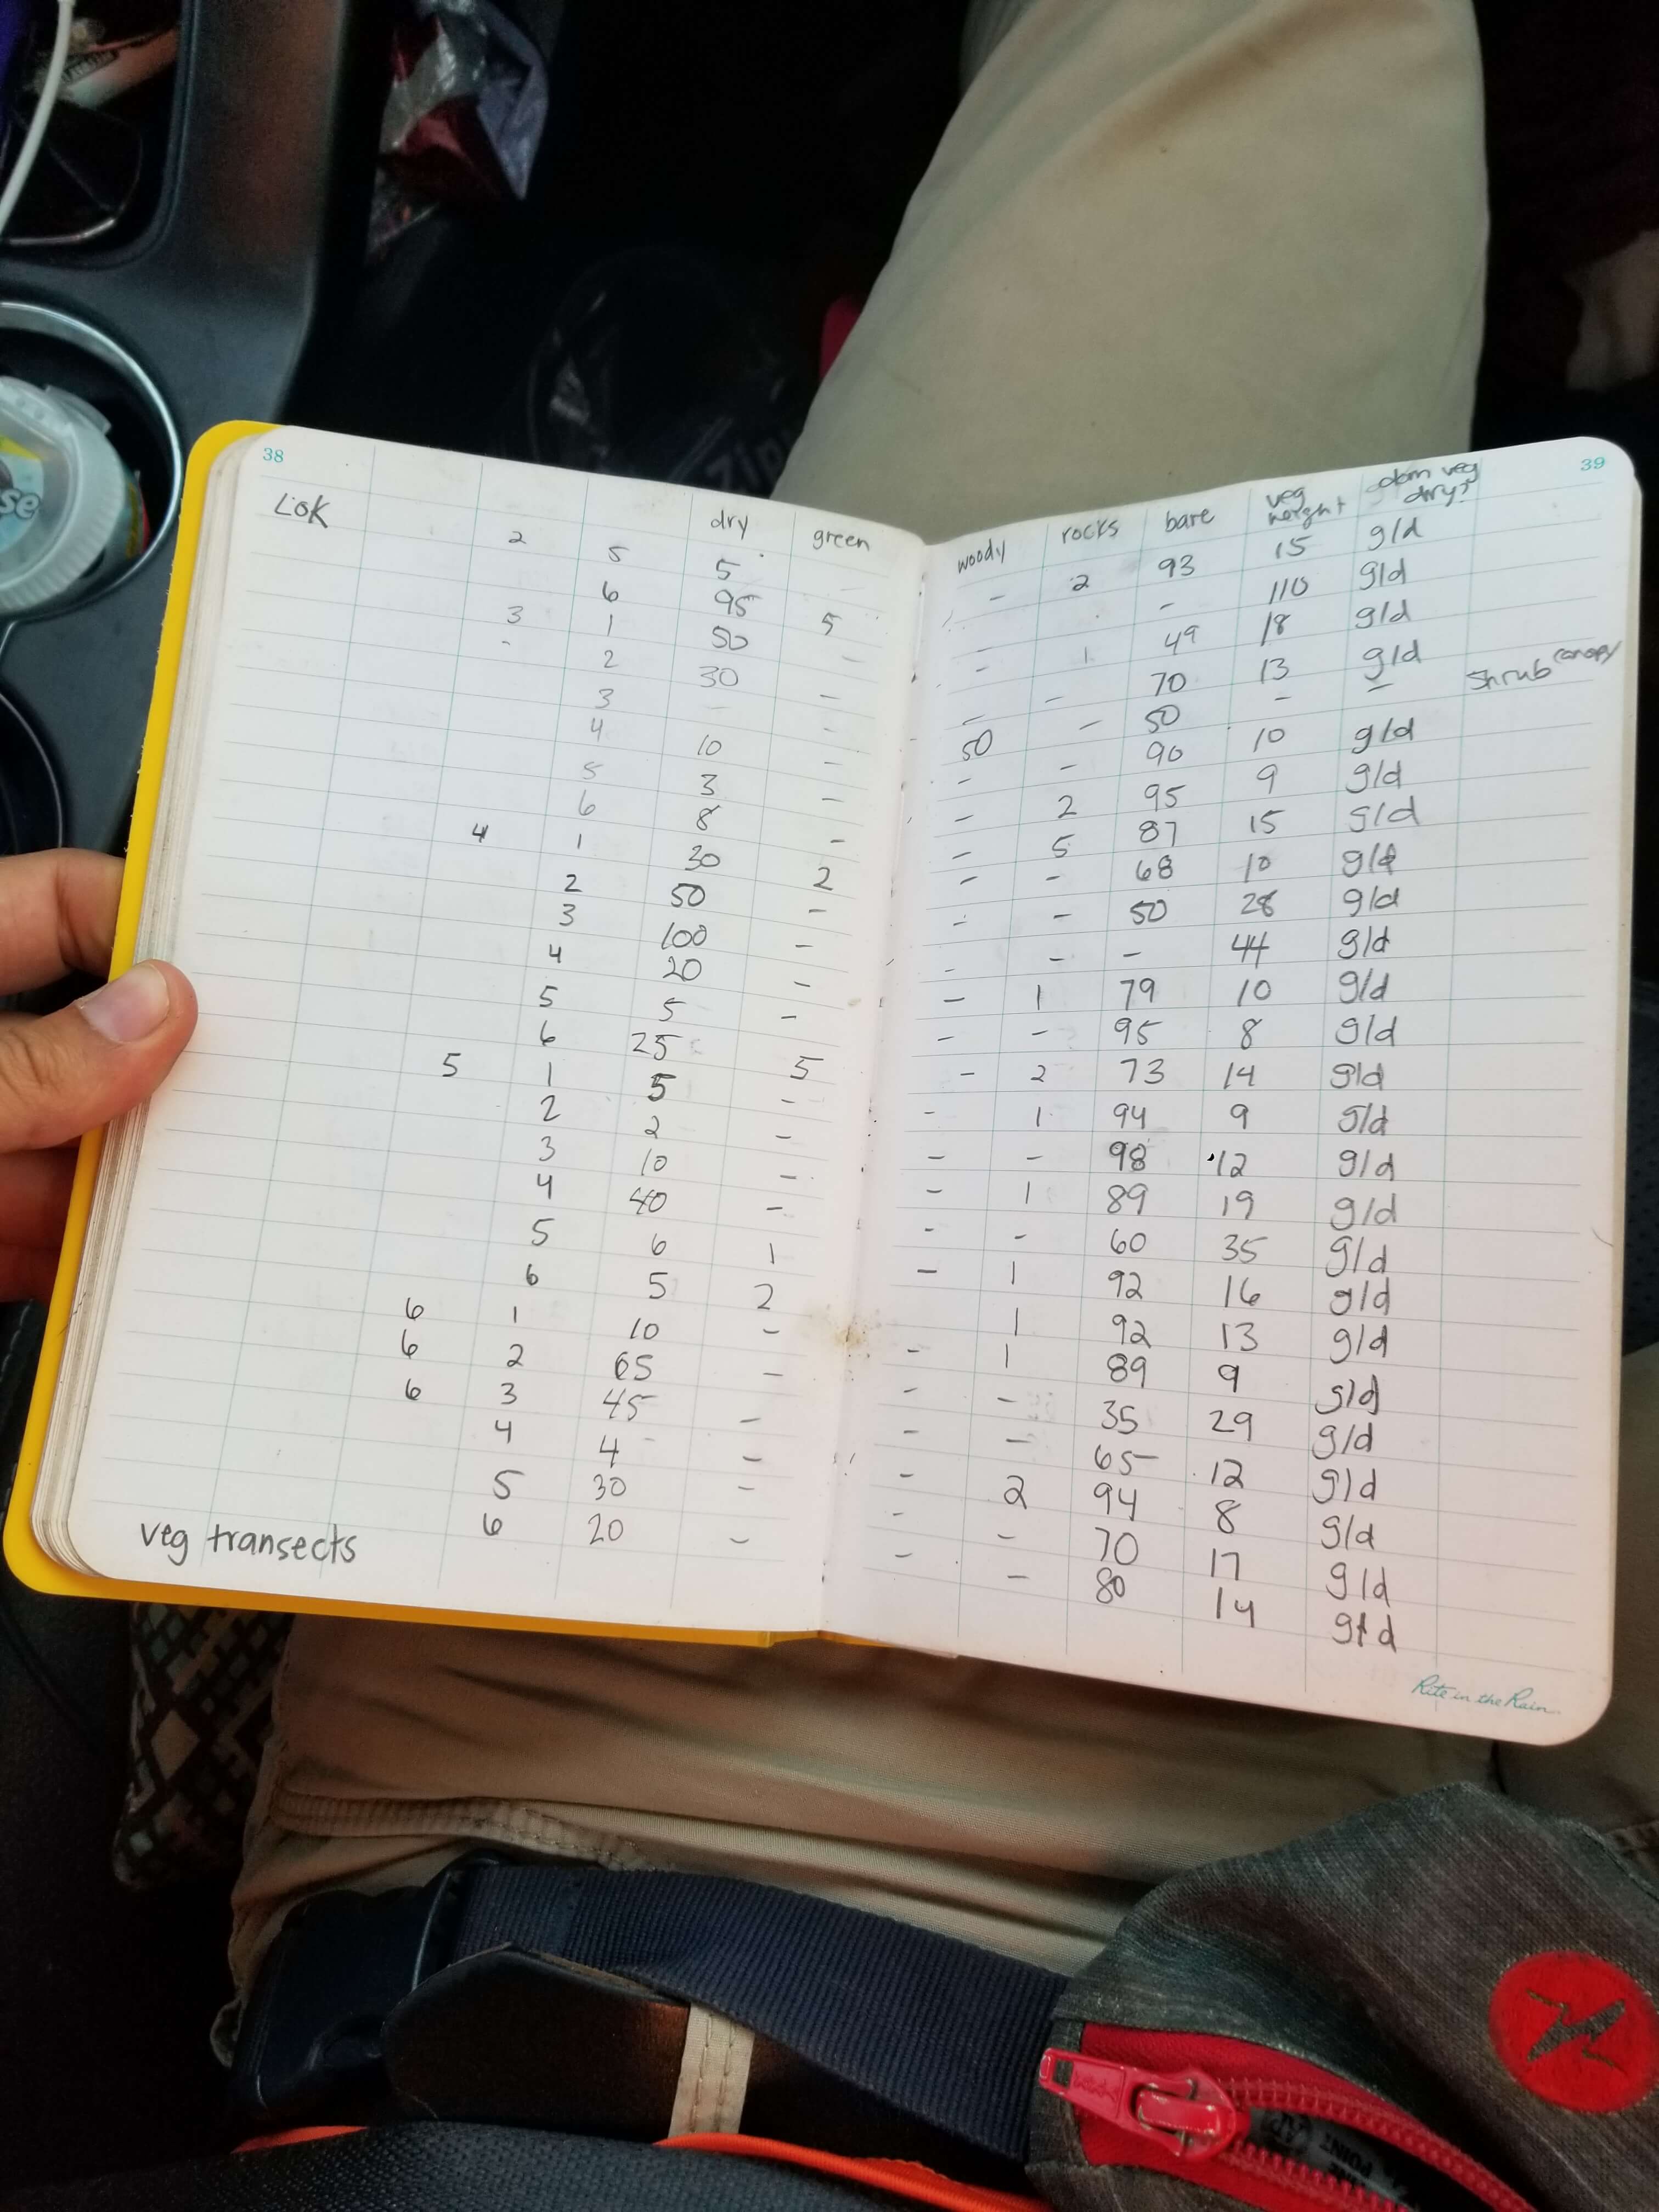 38
Liok
dry green
2 5 5
6 95 5
3 1 50 -
2 30 -
3 - -
4 10 -
5 3 -
6 8 -
4 1 30 2
2 50 -
3 100 -
4 20 -
5 5 -
6 25 5
5 1 5 -
2 2 -
3 10 -
4 40 -
5 6 1
6 5 2
6 1 10 -
6 2 65 -
6 3 45 -
4 4 -
5 30 -
6 20 -
veg transects
39
woody rocks bare veg height dom veg dry?
- 2 93 15 g/d
- - 110 g/d
- 1 49 18 g/d
- - 70 13 g/d
50 - 50 - - shrub canopy
- - 90 10 g/d
- 2 95 9 g/d
- 5 87 15 g/d
- - 68 10 g/d
- - 50 28 g/d
- - - 44 g/d
- 1 79 10 g/d
- - 95 8 g/d
- 2 73 14 g/d
- 1 94 9 g/d
- - 98 12 g/d
- 1 89 19 g/d
- - 60 35 g/d
- 1 92 16 g/d
1 92 13 g/d
- 1 89 9 g/d
- - 35 29 g/d
- - 65 12 g/d
- 2 94 8 g/d
- - 70 17 g/d
- - 80 14 g/d
Rite in the Rain